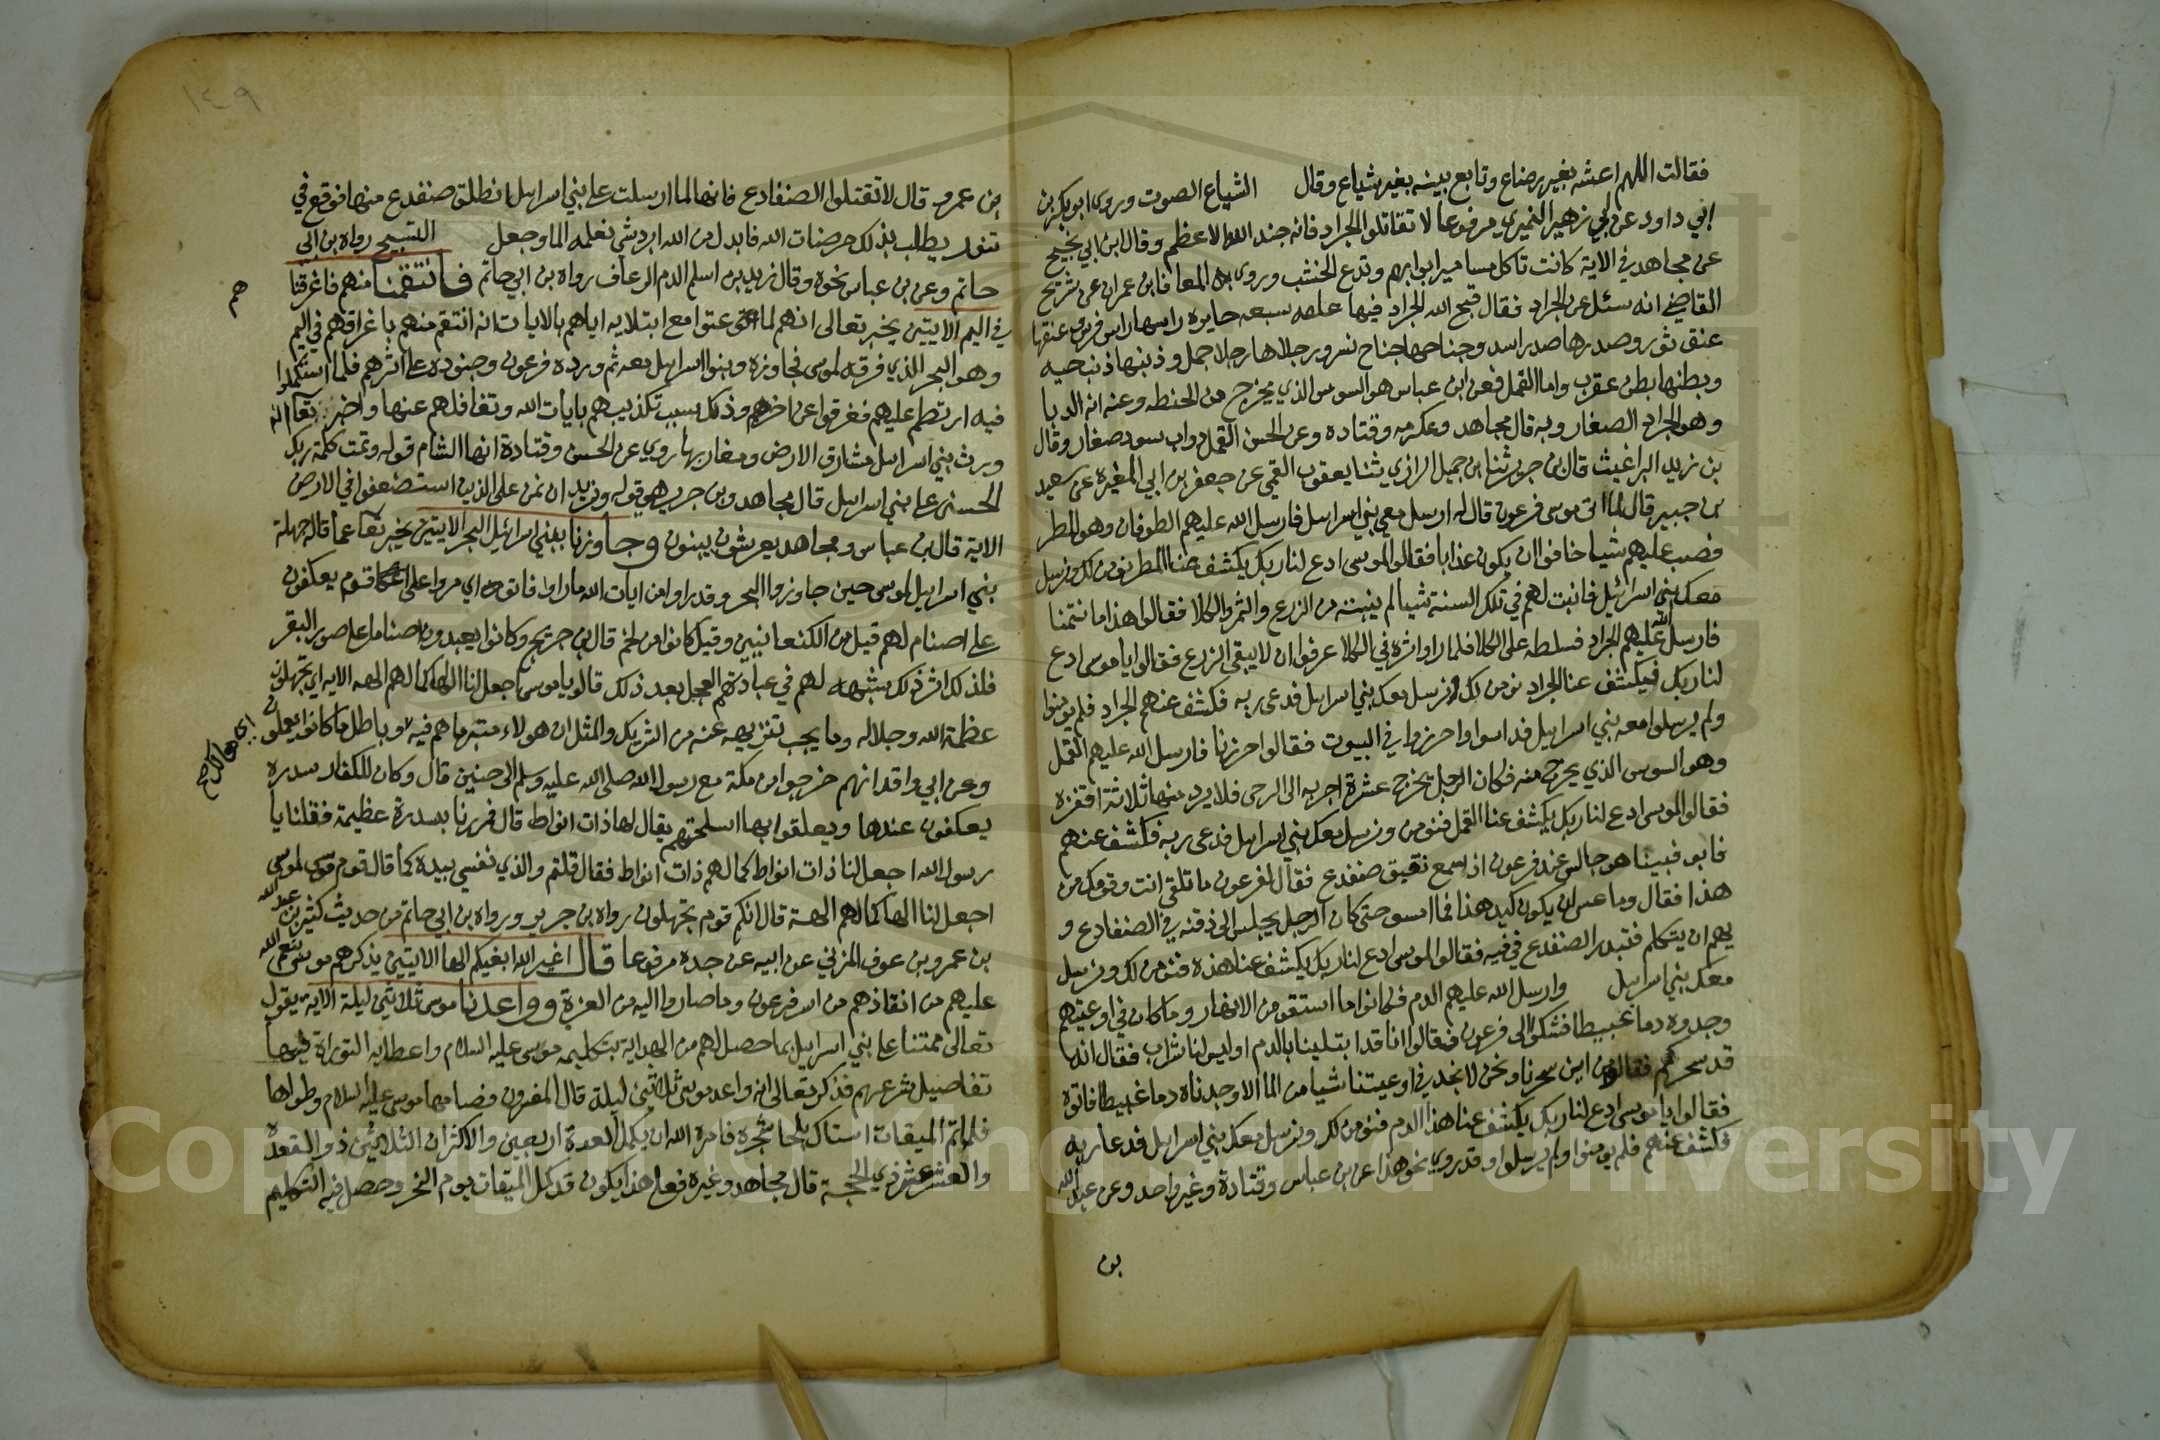 فقالت اللهم اعشه بغير رضاع وتابع بينه بغير شياع وقال الشياع الصوت وروى ابو بكر بن
ابي داود عن ابي زهير النميري مرفوعا لا تقاتلوا الجراد فانه جند الله الاعظم وقال ابن ابي نجيح
عن مجاهد في الاية كانت تاكل مسامير ابوابهم وتدع الخشب وروى المعافا بن عمران عن شريح
القاضي انه سئل عن الجراد فقال قبح الله الجراد فيها سبعه جبابره راسها راس فرس وعنقها
عنق ثور وصدرها صدر اسد وجناحها جناح نسر ورجلاها رجلا جمل وذنبها ذنب حيه
وبطنها بطن عقرب واما القمل فعن ابن عباس هو السوس الذي يخرج من الحنطه وعنه انه الدبا
وهو الجراد الصغار وبه قال مجاهد وعكرمه وقتاده وعن الحسن القمل دواب سود صغار وقال
بن زيد البراغيث قال بن جرير ثنا بن حميل الرازي ثنا يعقوب القمي عن جعفر بن ابي المغيره عن سعيد
بن جبير قال لما اتى موسى فرعون قال له ارسل معي بني اسراييل فارسل الله عليهم الطوفان وهو المطر
فصب عليهم شيا خافوا ان يكون عذابا فقالوا لموسى ادع لنا ربك يكشف عنا المطر نؤمن لك ونرسل
معك بني اسرائيل فانبت لهم في تلك السنة شيا لم ينبته من الزرع والثمر والكلا فقالوا هذا ما نتمنا
فارسل الله عليهم الجراد فسلطه على الكلا فلما راوا اثره في الكلا عرفوا ان لا يبقى الزرع فقالوا يا موسى ادع
لنا ربك فيكشف عنا الجراد نومن لك ونرسل معك بني اسراييل فدعى ربه فكشف عنهم الجراد فلم يومنوا
ولم يرسلوا معه بني اسراييل فداسوا واحرزوا في البيوت فقالوا احرزنا فارسل الله عليهم القمل
وهو السوس الذي يخرج منه فكان الرجل يخرج عشرة اجربه الى الرحى فلا يرد منها ثلاثة اقفزه
فقالوا لموسى ادع لنا ربك يكشف عنا القمل فنؤمن ونرسل معك بني اسراييل فدعى ربه فكشف عنهم
فابو فبينا هو جالس عند فرعون اذ سمع نقيق ضفدع فقال لفرعون ما تلقى انت وقومك من
هذا فقال وما عسى ان يكون كيد هذا فما امسو حتى كان الرجل يجلس الى ذقنه في الضفادع و
يهم ان يتكلم فتبدر الضفدع في فيه فقالوا لموسى ادع لنا ربك يكشف عنا هذه فنؤمن لك ونرسل
معك بني اسراييل وارسل الله عليهم الدم فكانوا ما استقو من الانهار وما كان في اوعيتهم
وجدوه دما عبيطا فشكوا الى فرعون فقالوا انا قد ابتلينا بالدم اوليس لنا شراب فقال انه
قد سحركم فقالو من اين سحرنا ونحن لا نجد في اوعيتنا شيا من الما الا وجدناه دما غبيطا فاتوه
فقالوا يا موسى ادع لنا ربك يكشف عنا هذا الدم فنؤمن لك ونرسل معك بني اسراييل فدعا ربه
فكشف عنهم فلم يومنوا ولم يرسلوا وقد روي نحو هذا عن بن عباس وقتادة وغير واحد وعن عبد الله
بن
١٤٩
بن عمرو قال لا تقتلوا الضفادع فانها لما ارسلت على بني اسراييل انطلق ضفدع منها فوقع في
تنور يطلب بذلك مرضات الله فابدل من الله ابرد شي نعلمه الما وجعل التسبيح رواه بن ابي
حاتم وعن بن عباس نحوه وقال زيد بن اسلم الدم الرعاف رواه بن ابي حاتم فانتقمنا منهم فاغرقنا
هم
في اليم الايتين يخبر تعالى انهم لما عتوا مع ابتلايه اياهم بالايات انه انتقم منهم باغراقهم في اليم
وهو البحر الذي فرقه لموسى فجاوزه وبنوا اسراييل معه ثم ورده فرعون وجنوده على اثرهم فلما استكملوا
فيه ارتطم عليهم فغرقوا عن اخرهم وذلك بسبب تكذيبهم بايات الله وتغافلهم عنها واخبر تعالى انه
ورث بني اسراييل مشارق الارض ومغاربها روي عن الحسن وقتادة انها الشام قوله وتمت كلمة ربك
الحسنى على بني اسراييل قال مجاهد وبن جرير هي قوله ونريد ان نمن على الذين استضعفوا في الارض
الاية قال بن عباس ومجاهد يعرشون يبنون وجاوزنا ببني اسرائيل البحر الايتين يخبر تعالى عما قاله جهلة
بني اسراييل لموسى حين جاوزوا البحر وقد راوا من ايات الله ما راوا فاتوه اي مروا على قوم يعكفون
على اصنام لهم قيل من الكنعانيين وقيل كانوا من لخم قال بن جريج وكانوا يعبدون اصناما على صور البقر
فلذلك اثر ذلك شبهة لهم في عبادتهم العجل بعد ذلك قالو يا موسى اجعل لنا الها كما لهم الهه الايه اي تجهلون
عظمة الله وجلاله وما يجب تنزيهه عنه من الشريك والمثل ان هولاء متبر ما هم فيه وباطل ما كانوا يعملون
اي هالك
وعن ابي واقد انهم خرجوا من مكة مع رسول الله صلى الله عليه وسلم الى حنين قال وكان للكفار سدره
يعكفون عندها ويعلقوا بها اسلحتهم يقال لها ذات انواط قال فمررنا بسدرة عظيمة فقلنا يا
رسول الله اجعل لنا ذات انواط كما لهم ذات انواط فقال قلتم والذي نفسي بيده كما قال قوم موسى لموسى
اجعل لنا الها كما لهم الهة قال انكم قوم تجهلون رواه بن جرير ورواه بن ابي حاتم من حديث كثير بن عبد الله
بن عمرو بن عوف المزني عن ابيه عن جده مرفوعا قال اغير الله ابغيكم الها الايتين يذكرهم موسى نعم الله
عليهم من انقاذهم من اسر فرعون وما صاروا اليه من العزة وواعدنا موسى ثلاثين ليلة الاية يقول
تعالى ممتنا على بني اسراييل بما حصل لهم من الهداية بتكليمه موسى عليه السلام واعطايه التوراة فيها
تفاصيل شرعهم فذكر تعالى انه واعد موسى ثلاثين ليلة قال المفسرون فصامها موسى عليه السلام وطواها
فلما تم الميقات استاك بلحا شجرة فامره الله ان يكمل العدة اربعين والاكثر ان الثلاثين ذو القعدة
والعشر عشر ذي الحجة قال مجاهد وغيره فعلى هذا يكون قد كمل الميقات يوم النحر وحصل فيه التكليم
Copyright © King Saud University